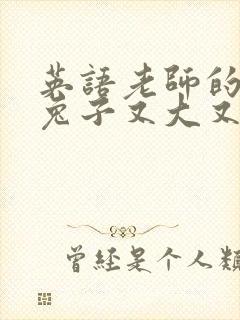 英語老師的
兔子又大又
曾经是个人類